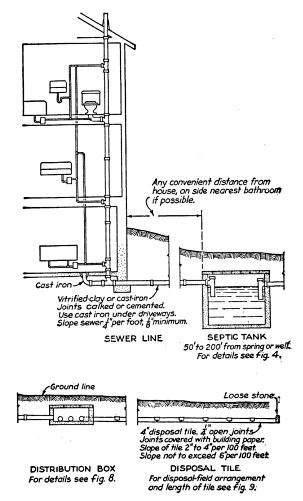 Any convenient distance from
house, on side nearest bathroom
if possible.
Cast iron
Vitrified-clay or cast-iron
Joints calked or cemented.
Use cast iron under driveways.
Slope sewer ¼" per foot, ⅛" minimum.
SEWER LINE
SEPTIC TANK
50' to 200' from spring or well.
For details see fig. 4.
Ground line
Loose stone
4" disposal tile, ¼" open joints
Joints covered with building paper.
Slope of tile 2" to 4" per 100 feet
Slope not to exceed 6" per 100 feet
DISTRIBUTION BOX
For details see fig. 8.
DISPOSAL TILE
For disposal-field arrangement
and length of tile see fig. 9.